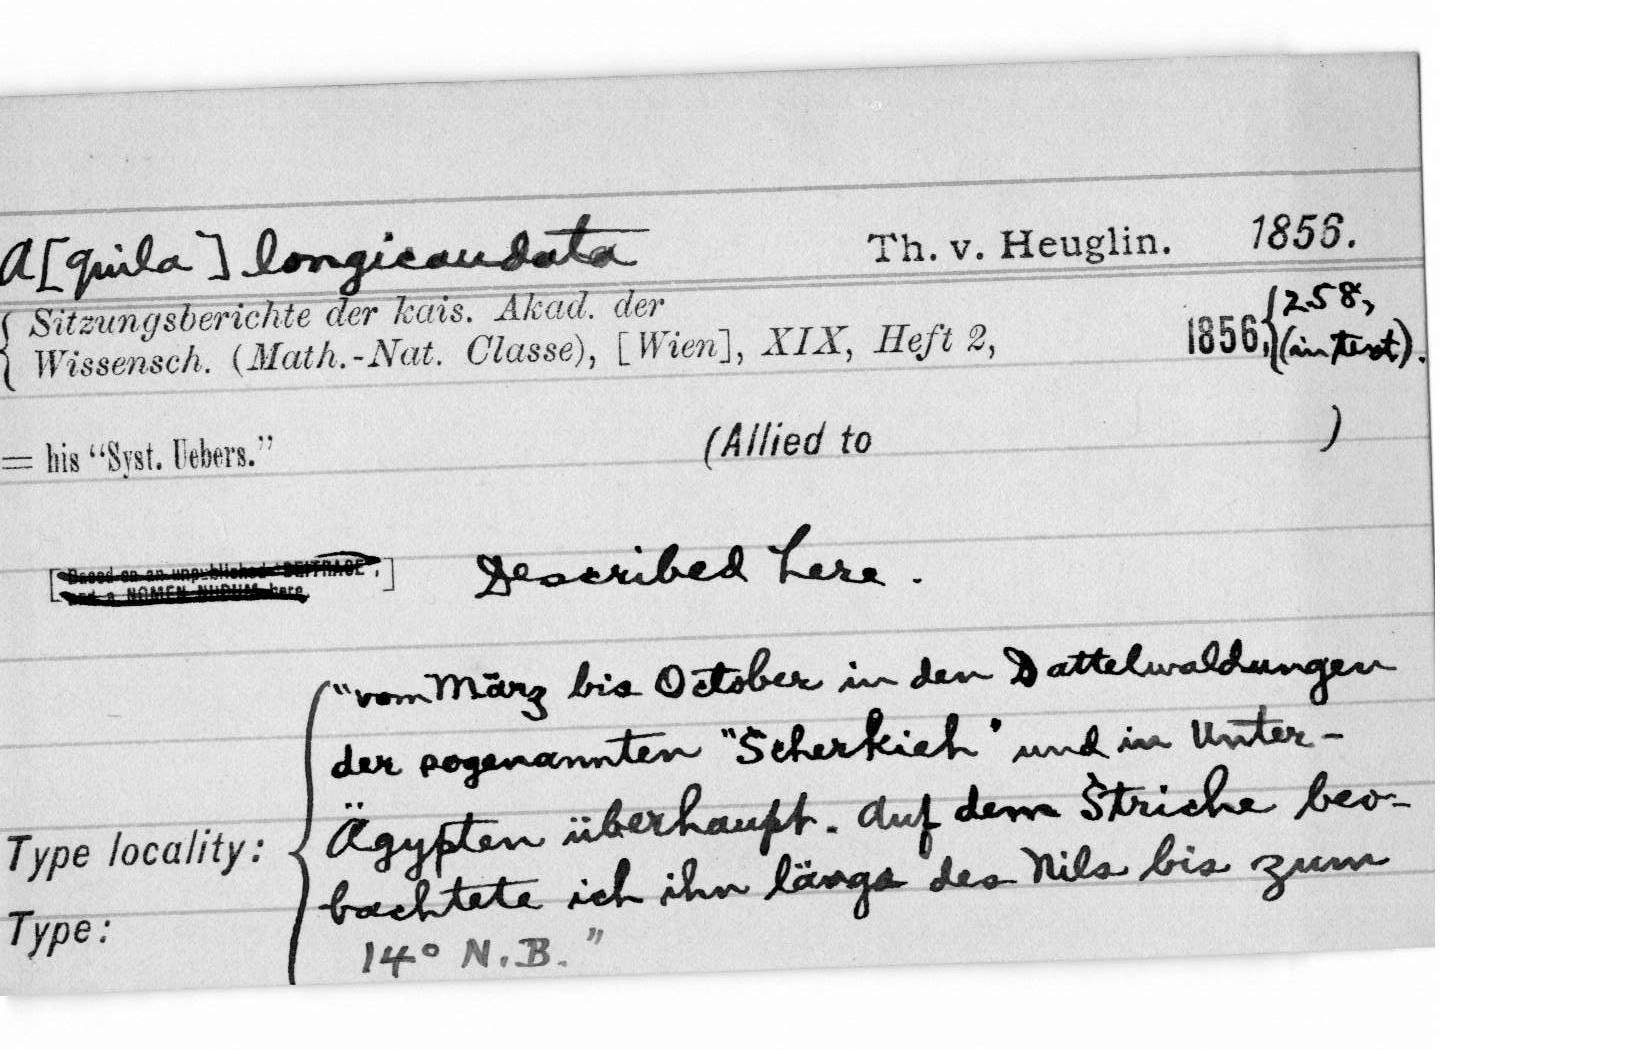 A[quila] longicaudata Th. v. Heuglin. 1856.
Sitzungsberichte der kais. Akad. der
Wissensch. (Math.-Nat. Classe), [Wien], XIX, Heft 2, 1856, {258, (in text).
= his "Syst. Uebers." (Allied to )
[Based on an unpublished "BEITRAGE",
and a NOMEN NUDUM here.] Described here.
"vom März bis October in den Dattelwaldungen
der sogenannten "Scherkieh" und in Unter-
Ägypten überhaupt. Auf dem Striche beo-
Type locality: bachtete ich ihn längs des Nils bis zum
Type: 14° N.B."